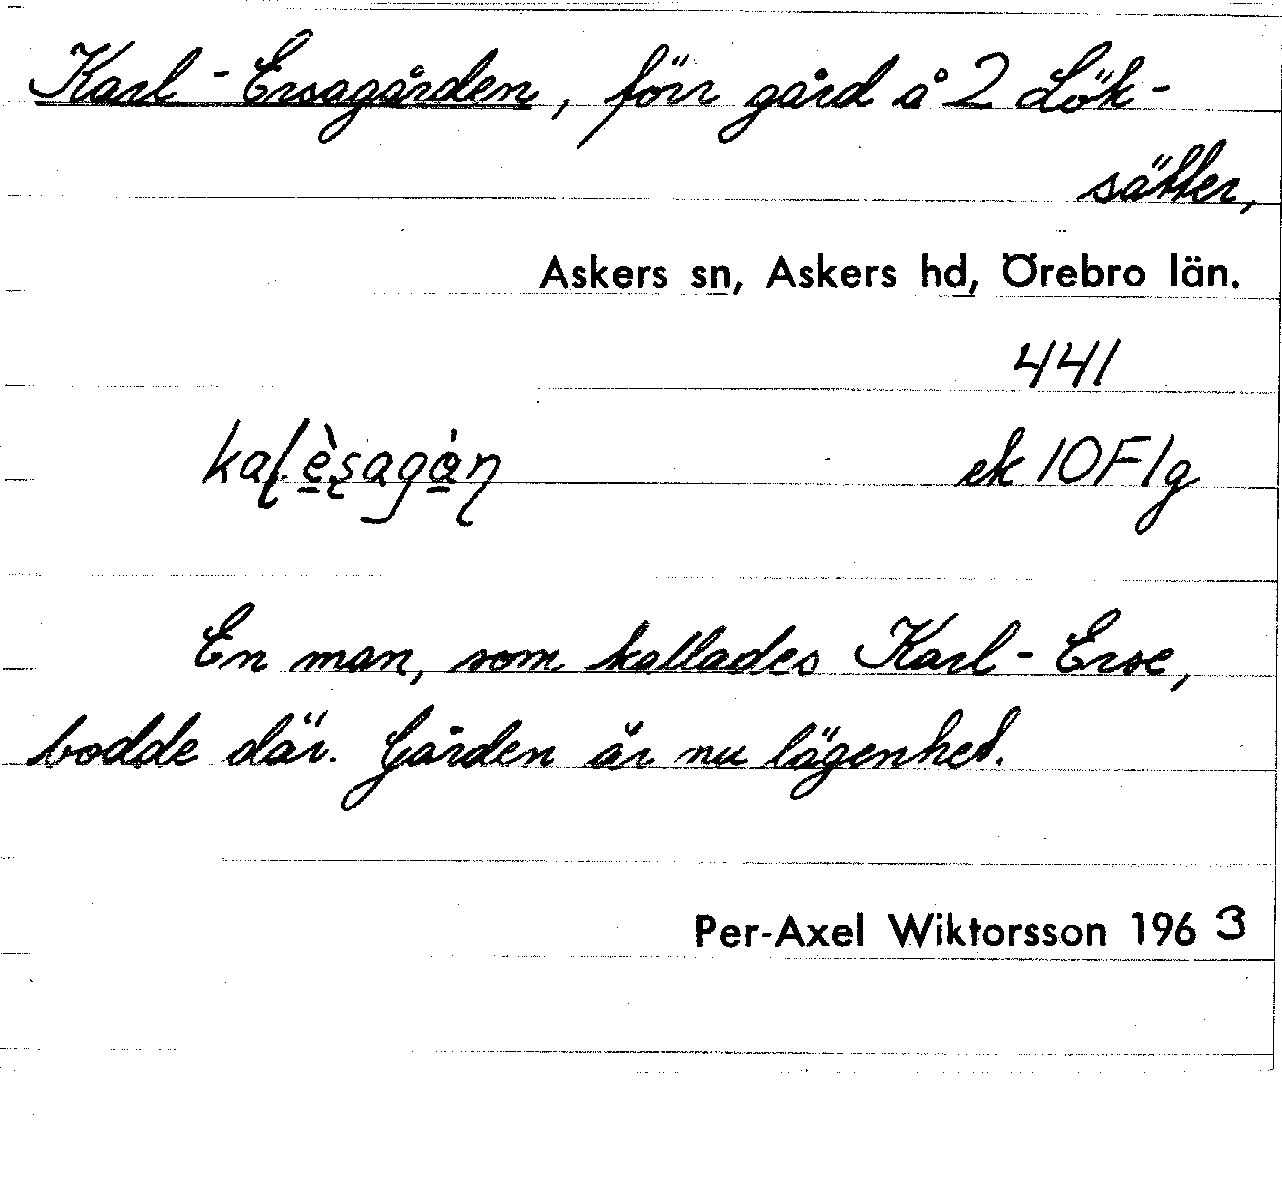 Karl-Ersagården, förr gård å 2 Lök-
sätter,
Askers sn, Askers hd, Örebro län.
441
ek 10F1g
En man, som kallades Karl-Erse,
bodde där. Gården är nu lägenhet.
Per-Axel Wiktorsson 1963